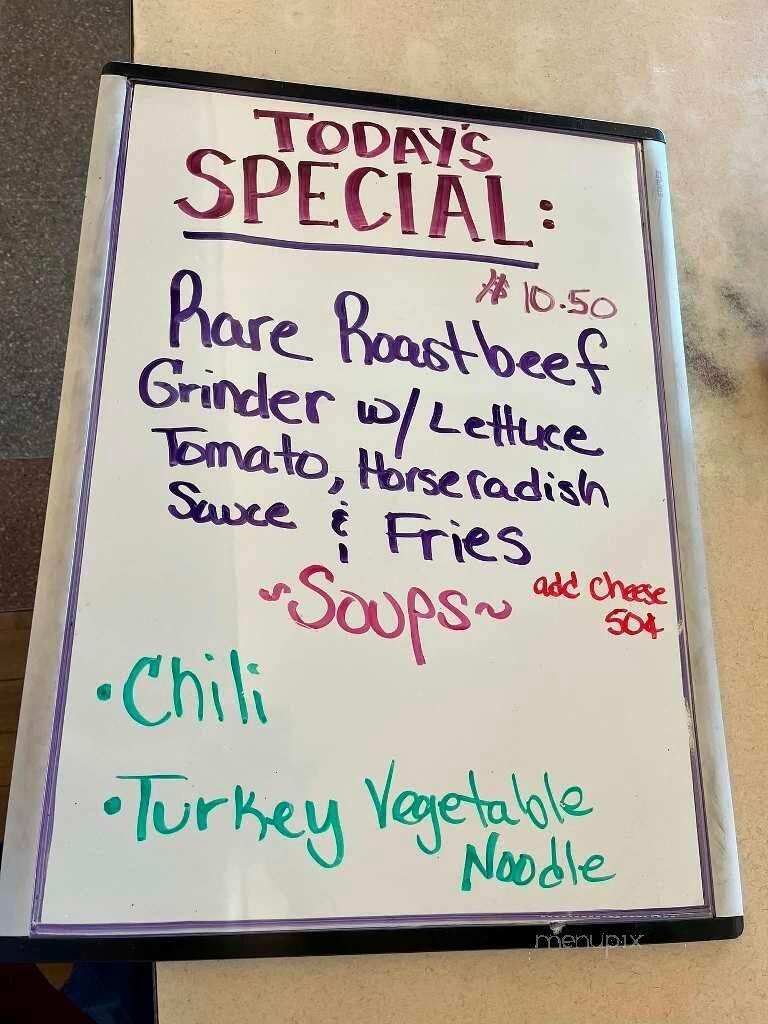 TODAY'S
SPECIAL:
$10.50
Rare Roastbeef
Grinder w/ Lettuce
Tomato, Horseradish
Sauce & Fries
~Soups~
add cheese
50¢
•Chili
•Turkey Vegetable
Noodle
menupix